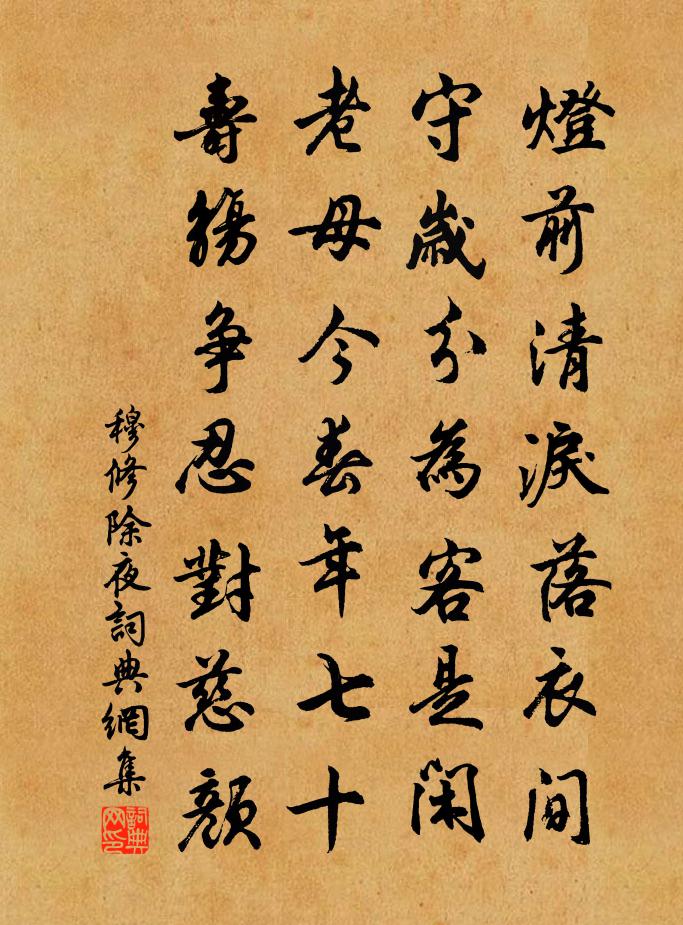 燈前清淚落衣間
守歲分為客是閑
老母今春年七十
壽觴爭忍對慈顏
穆修除夜詞典網集
詞典網印